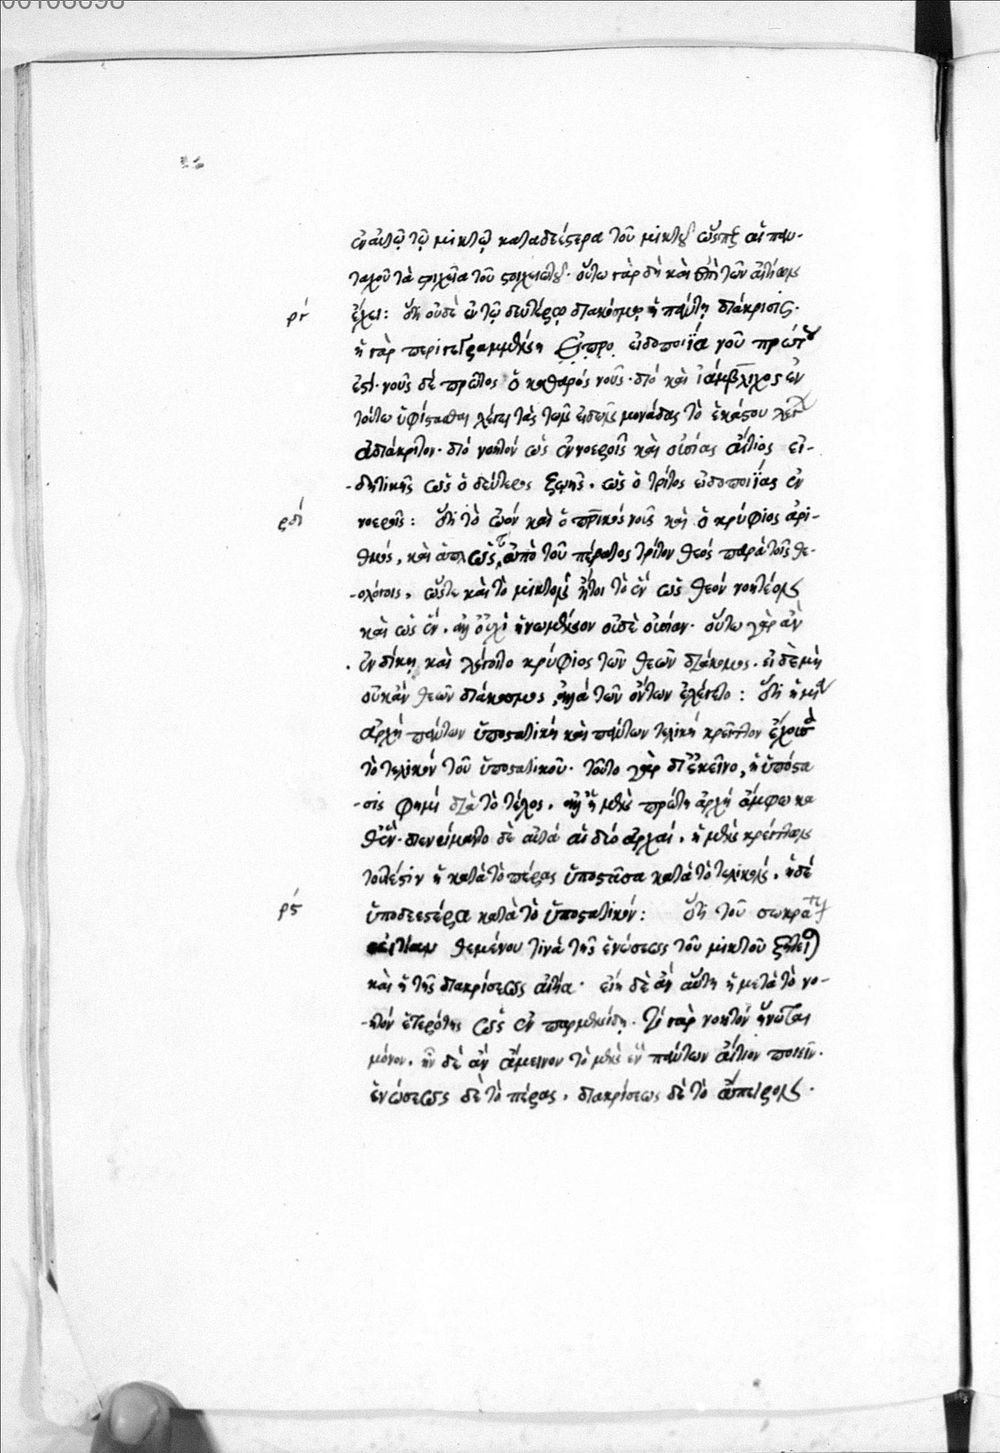 00108698
ἐν αὐτῷ τῷ μικτῷ καταδεέστερα τοῦ μικτοῦ ὥσπερ ἁπαν-
ταχοῦ τὰ στοιχεῖα τοῦ στοιχειωτοῦ· οὕτω γὰρ δὴ καὶ ἐπὶ τῶν αἰτίων
ργ ἔχει: ὅτι οὐδὲ ἐν τῷ δευτέρῳ διακόσμῳ ἡ πάντη διάκρισις·
ἡ γὰρ περιγεγραμμένη εἰδοποιΐα νοῦ πρώτου
ἐστί· νοῦς δὲ πρῶτος ὁ καθαρός νοῦς· διό καὶ ἰάμβλιχος ἐν
τούτω ὑφίστασθαι λέγει τὰς τῶν εἰδῶν μονάδας τὸ ἑκάστου λέγων
ἀδιάκριτον· διό νοητόν ὡς ἐν νοεροῖς καὶ οὐσίας αἴτιος εἰ-
-δητικῆς ὡς ὁ δεύτερος ζωῆς, ὡς ὁ τρίτος εἰδοποιΐας ἐν
ρδ νοεροῖς: ὅτι τὸ ὠόν καὶ ὁ πατρικός νοῦς καὶ ὁ κρύφιος ἀρι-
θμός, καὶ ἁπλῶς ὁ ἀπὸ τοῦ πέρατος τρίτον θεός παρὰ τοῖς θε-
-ολόγοις, ὥστε καὶ τὸ μικτὸν ἤτοι τὸ ἓν ὡς θεόν νοητέον
καὶ ὡς ἓν, ἀλλ' οὐχὶ ἡνωμένον οὐδὲ οὐσίαν· οὕτω γὰρ ἂν
ἐν δίκῃ καὶ λέγοιτο κρύφιος τῶν θεῶν διάκοσμος· εἰ δὲ μὴ
οὐκ ἂν θεῶν διάκοσμος, ἀλλὰ τῶν ὄντων ἐλέγετο: ὅτι ἡ μία
ἀρχή πάντων ὑποστατική καὶ πάντων τελική κρεῖττον ἔχουσα
τὸ τελικόν τοῦ ὑποστατικοῦ· τοῦτο γὰρ δι' ἐκεῖνο, ἡ ὑπόστα
-σις φημί διὰ τὸ τέλος, ἀλλ' ἡ μὲν πρώτη ἀρχή ἄμφω κα
θ' ἕν· διενείμαντο δὲ αὐτά αἱ δύο ἀρχαί, ἡ μὲν κρείττων
τουτέστιν ἡ κατὰ τὸ πέρας ὑποστᾶσα κατὰ τὸ τελικόν, ἡ δέ
ρϛ ὑποδεεστέρα κατὰ τὸ ὑποστατικόν: ὅτι τοῦ σωκράτους
αἰτίαν θεμένου τινά τῆς ἑνώσεως τοῦ μικτοῦ ζητεῖται
καὶ ἡ τῆς διακρίσεως αἰτία· εἴη δὲ ἂν αὕτη ἡ μετὰ τὸ νο-
-ητόν ἑτερότης ὡς ἐν παρμενίδῃ· τὸ γὰρ νοητόν ἥνωται
μόνον, ἦν δὲ ἂν ἄμεινον τὸ μὲν ἓν πάντων αἴτιον ποιεῖν·
ἑνώσεως δὲ τὸ πέρας, διακρίσεως δὲ τὸ ἄπειρον·